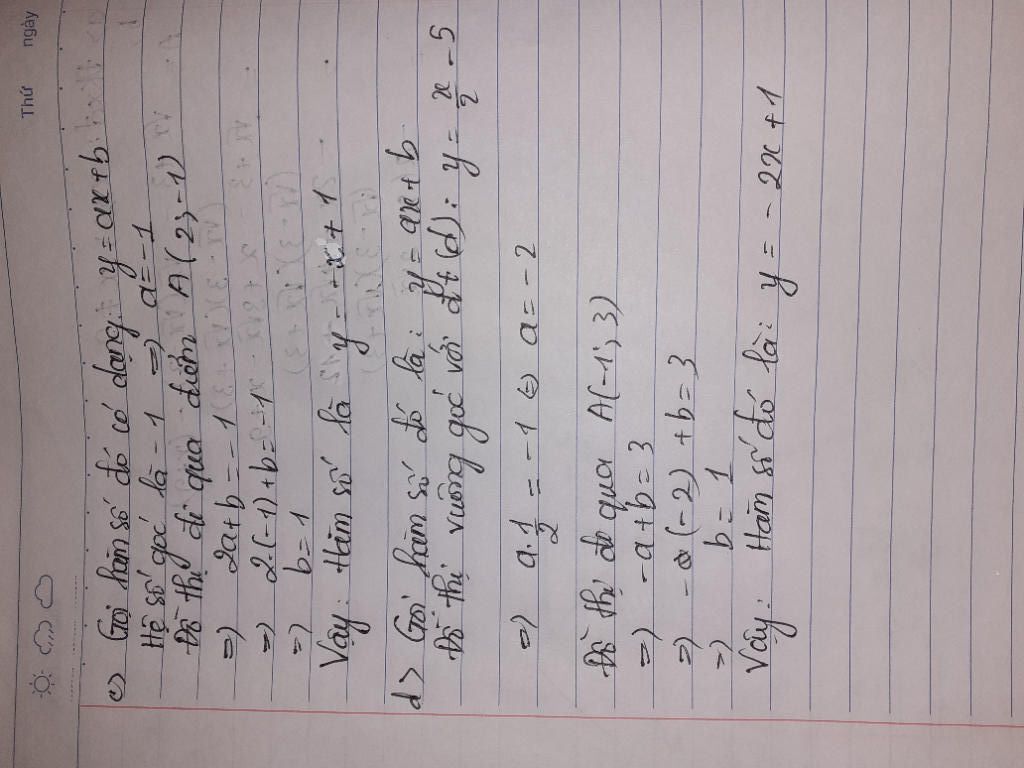 Thứ ngày
c> Gọi hàm số đó có dạng: y = ax + b
Hệ số góc là -1 => a = -1
Đồ thị đi qua điểm A(2; -1)
=> 2a + b = -1
=> 2.(-1) + b = -1
=> b = 1
Vậy: Hàm số là y = -x + 1
d> Gọi hàm số đó là: y = ax + b
Đồ thị vuông góc với đt (d): y = x/2 - 5
=> a. 1/2 = -1 <=> a = -2
Đồ thị đi qua A(-1; 3)
=> -a + b = 3
=> - (-2) + b = 3
=> b = 1
Vậy: Hàm số đó là: y = -2x + 1